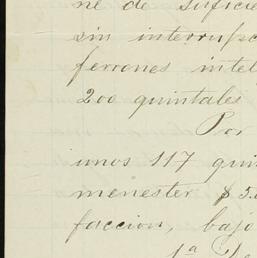 ne de suficie
sin interrupc
ferrones intel
200 quintales
Por
unos 117 quin
menester $ 5.
faccion, bajo
1ª De